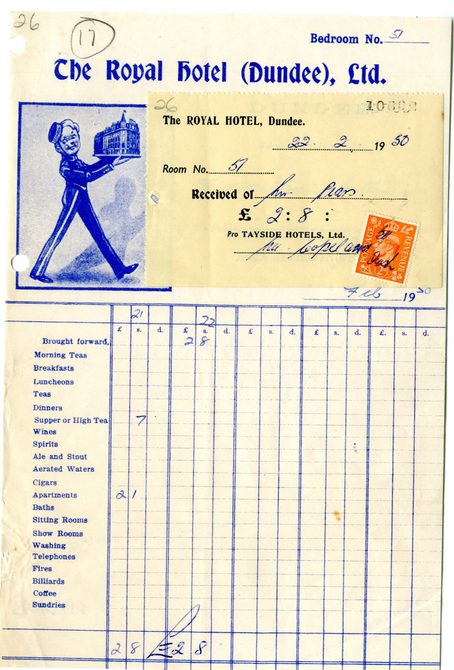 26
17
Bedroom No. 51
The Royal Hotel (Dundee), Ltd.
26
10602
The ROYAL HOTEL, Dundee.
22. 2. 1950
Room No. 51
Received of Mr.
£ 2 : 8 :
Pro TAYSIDE HOTELS, Ltd.
POSTAGE REVENUE
Feb 1950
21 22
£ s. d. £ s. d. £ s. d. £ s. d. £ s. d. £ s. d.
Brought forward, 2 8
Morning Teas
Breakfasts
Luncheons
Teas
Dinners
Supper or High Tea 7
Wines
Spirits
Ale and Stout
Aerated Waters
Cigars
Apartments 2 1
Baths
Sitting Rooms
Show Rooms
Washing
Telephones
Fires
Billiards
Coffee
Sundries
2 8 £ 2 8